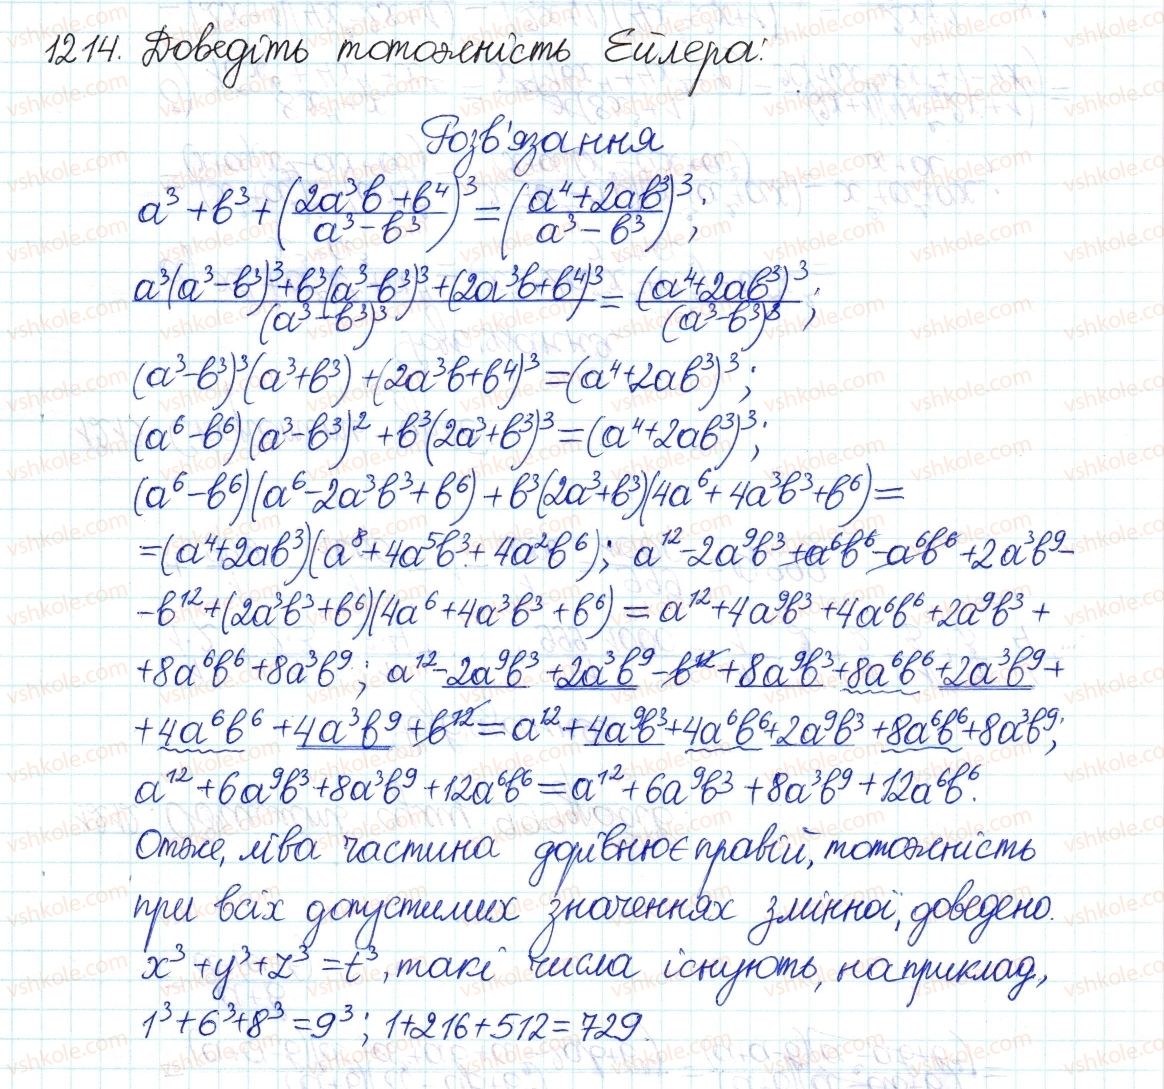 1214. Доведіть тотожність Ейлера:
Розв'язання
a³ + b³ + ((2a³b + b⁴)/(a³ - b³))³ = ((a⁴ + 2ab³)/(a³ - b³))³;
(a³(a³ - b³)³ + b³(a³ - b³)³ + (2a³b + b⁴)³)/(a³ - b³)³ = (a⁴ + 2ab³)³/(a³ - b³)³;
(a³ - b³)³(a³ + b³) + (2a³b + b⁴)³ = (a⁴ + 2ab³)³;
(a⁶ - b⁶)(a³ - b³)² + b³(2a³ + b³)³ = (a⁴ + 2ab³)³;
(a⁶ - b⁶)(a⁶ - 2a³b³ + b⁶) + b³(2a³ + b³)(4a⁶ + 4a³b³ + b⁶) =
= (a⁴ + 2ab³)(a⁸ + 4a⁵b³ + 4a²b⁶); a¹² - 2a⁹b³ + a⁶b⁶ - a⁶b⁶ + 2a³b⁹ -
- b¹² + (2a³b³ + b⁶)(4a⁶ + 4a³b³ + b⁶) = a¹² + 4a⁹b³ + 4a⁶b⁶ + 2a⁹b³ +
+ 8a⁶b⁶ + 8a³b⁹; a¹² - 2a⁹b³ + 2a³b⁹ - b¹² + 8a⁹b³ + 8a⁶b⁶ + 2a³b⁹ +
+ 4a⁶b⁶ + 4a³b⁹ + b¹² = a¹² + 4a⁹b³ + 4a⁶b⁶ + 2a⁹b³ + 8a⁶b⁶ + 8a³b⁹;
a¹² + 6a⁹b³ + 8a³b⁹ + 12a⁶b⁶ = a¹² + 6a⁹b³ + 8a³b⁹ + 12a⁶b⁶.
Отже, ліва частина дорівнює правій, тотожність
при всіх допустимих значеннях змінної, доведено.
x³ + y³ + z³ = t³, такі числа існують, наприклад,
1³ + 6³ + 8³ = 9³; 1 + 216 + 512 = 729.